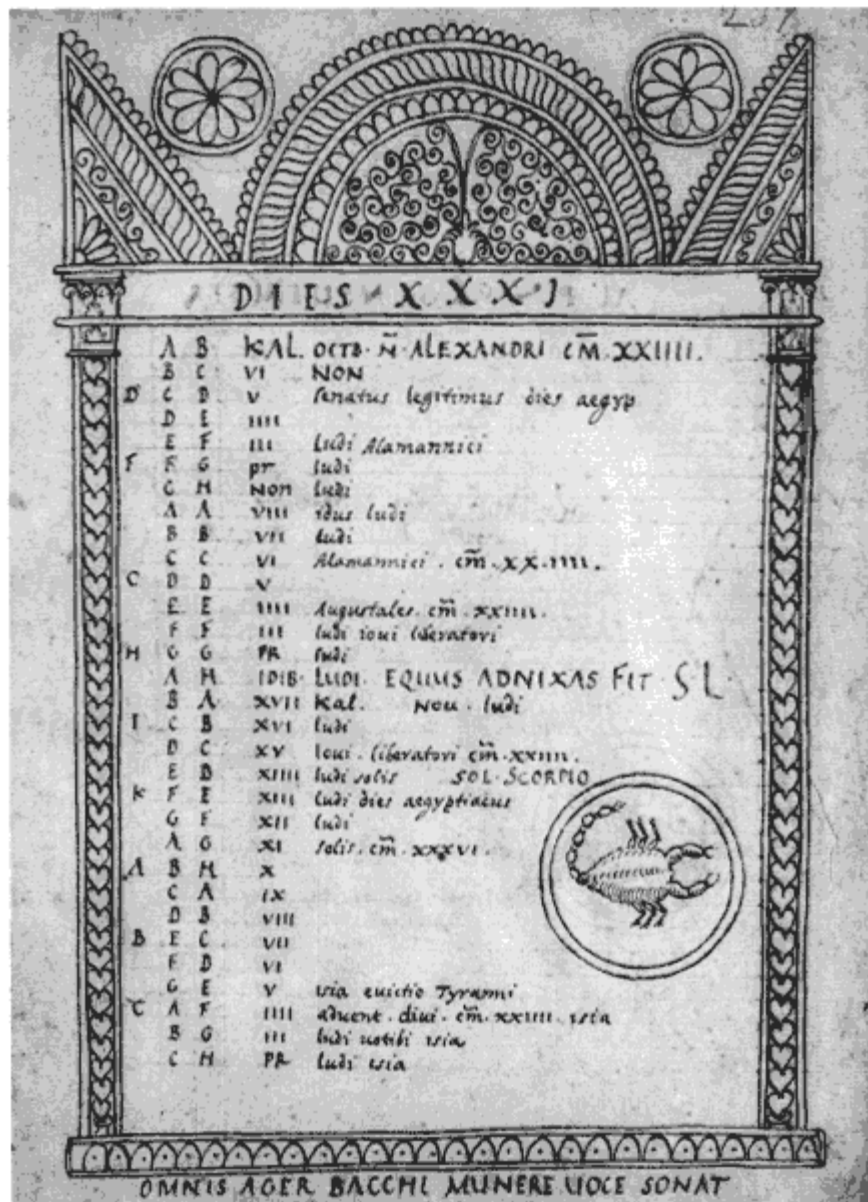 DIES XXXI
A B KAL. OCTB. N̄. ALEXANDRI CM̄. XXIIII.
B C VI NON
D C D V senatus legitimus dies aegyp
D E IIII
E F III Ludi Alamannici
F F G pr ludi
C H NON ludi
A A VIII idus ludi
B B VII ludi
C C VI Alamannici. cm̄. xx.IIII.
C D D V
E E IIII Augustales. cm̄. xxIIII.
F F III ludi ioui liberatori
H G G PR ludi
A H IDIB. LUDI. EQUUS ADNIXAS FIT. S L
B A XVII Kal. NOU. ludi
I C B XVI ludi
D C XV Ioui. liberatori cm̄. xxIIII.
E D XIIII ludi solis SOL. SCORPIO
K F E XIII ludi dies aegyptiacus
G F XII ludi
A G XI solis. cm̄. xxxVI.
A B H X
C A IX
D B VIII
B E C VII
F D VI
G E V isia euictio Tyranni
C A F IIII aduent. diui. cm̄. xxIIII. isia
B G III ludi uotibi isia
C H PR ludi isia
OMNIS AGER BACCHI MUNERE UOCE SONAT